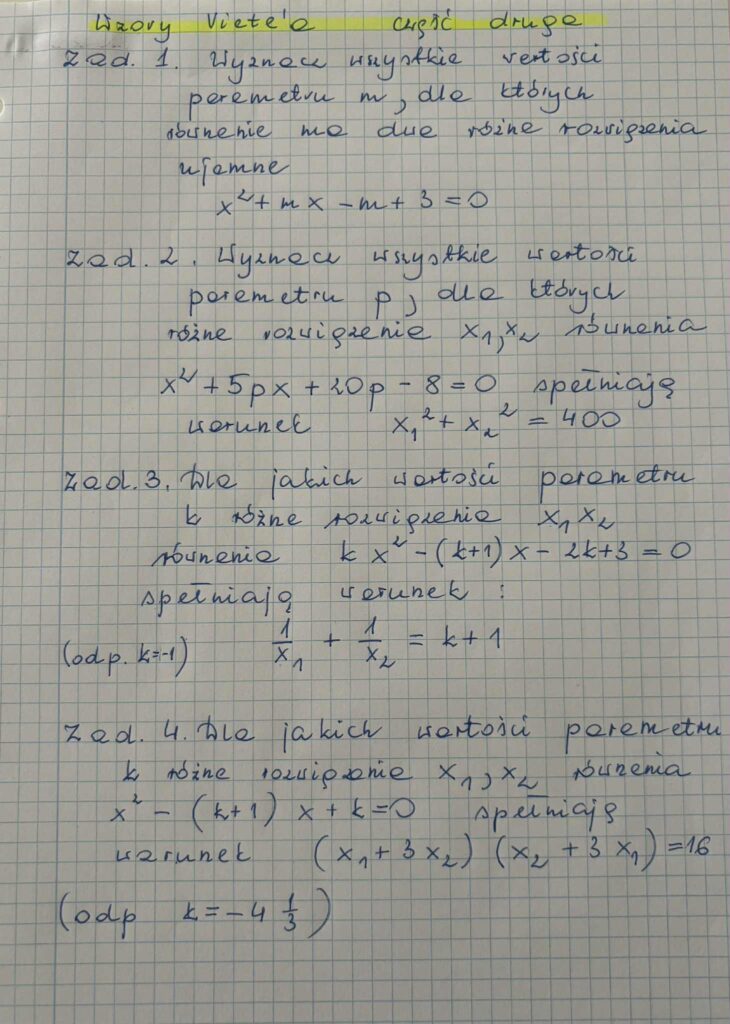 Wzory Viete'a część druga
Zad. 1. Wyznacz wszystkie wartości
parametru m, dla których
równanie ma dwa różne rozwiązania
ujemne
x² + mx - m + 3 = 0
Zad. 2. Wyznacz wszystkie wartości
parametru p, dla których
różne rozwiązania x₁, x₂ równania
x² + 5px + 20p - 8 = 0 spełniają
warunek x₁² + x₂² = 400
Zad. 3. Dla jakich wartości parametru
k różne rozwiązania x₁ x₂
równania k x² - (k+1) x - 2k + 3 = 0
spełniają warunek :
(odp. k=-1) 1/x₁ + 1/x₂ = k + 1
Zad. 4. Dla jakich wartości parametru
k różne rozwiązania x₁, x₂ równania
x² - (k+1) x + k = 0 spełniają
warunek (x₁ + 3x₂) (x₂ + 3x₁) = 16
(odp k = -4 1/3)